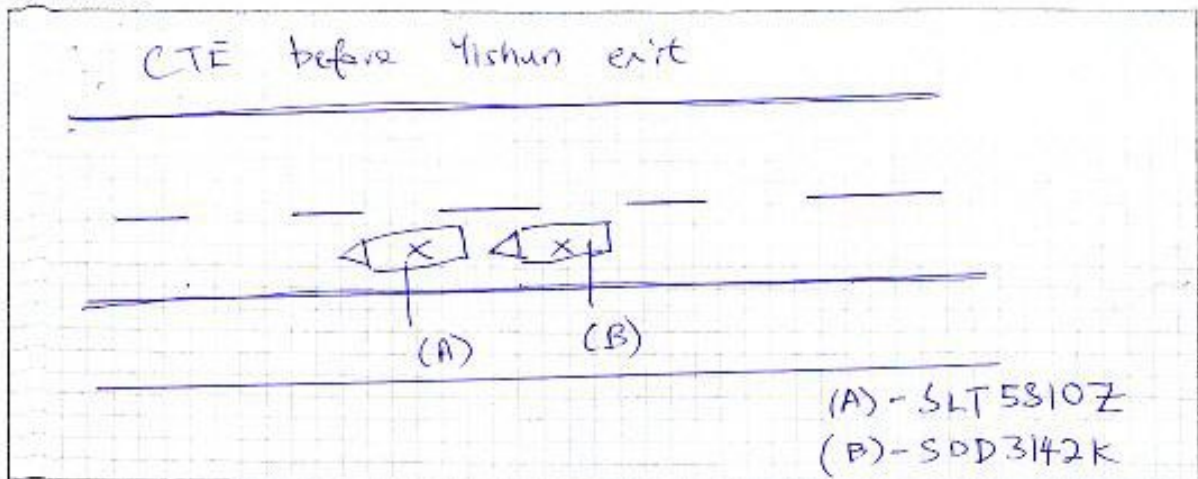 CTE before Yishun exit
X X
(A) (B)
(A) - SLT5810Z
(B) - SDD3142K